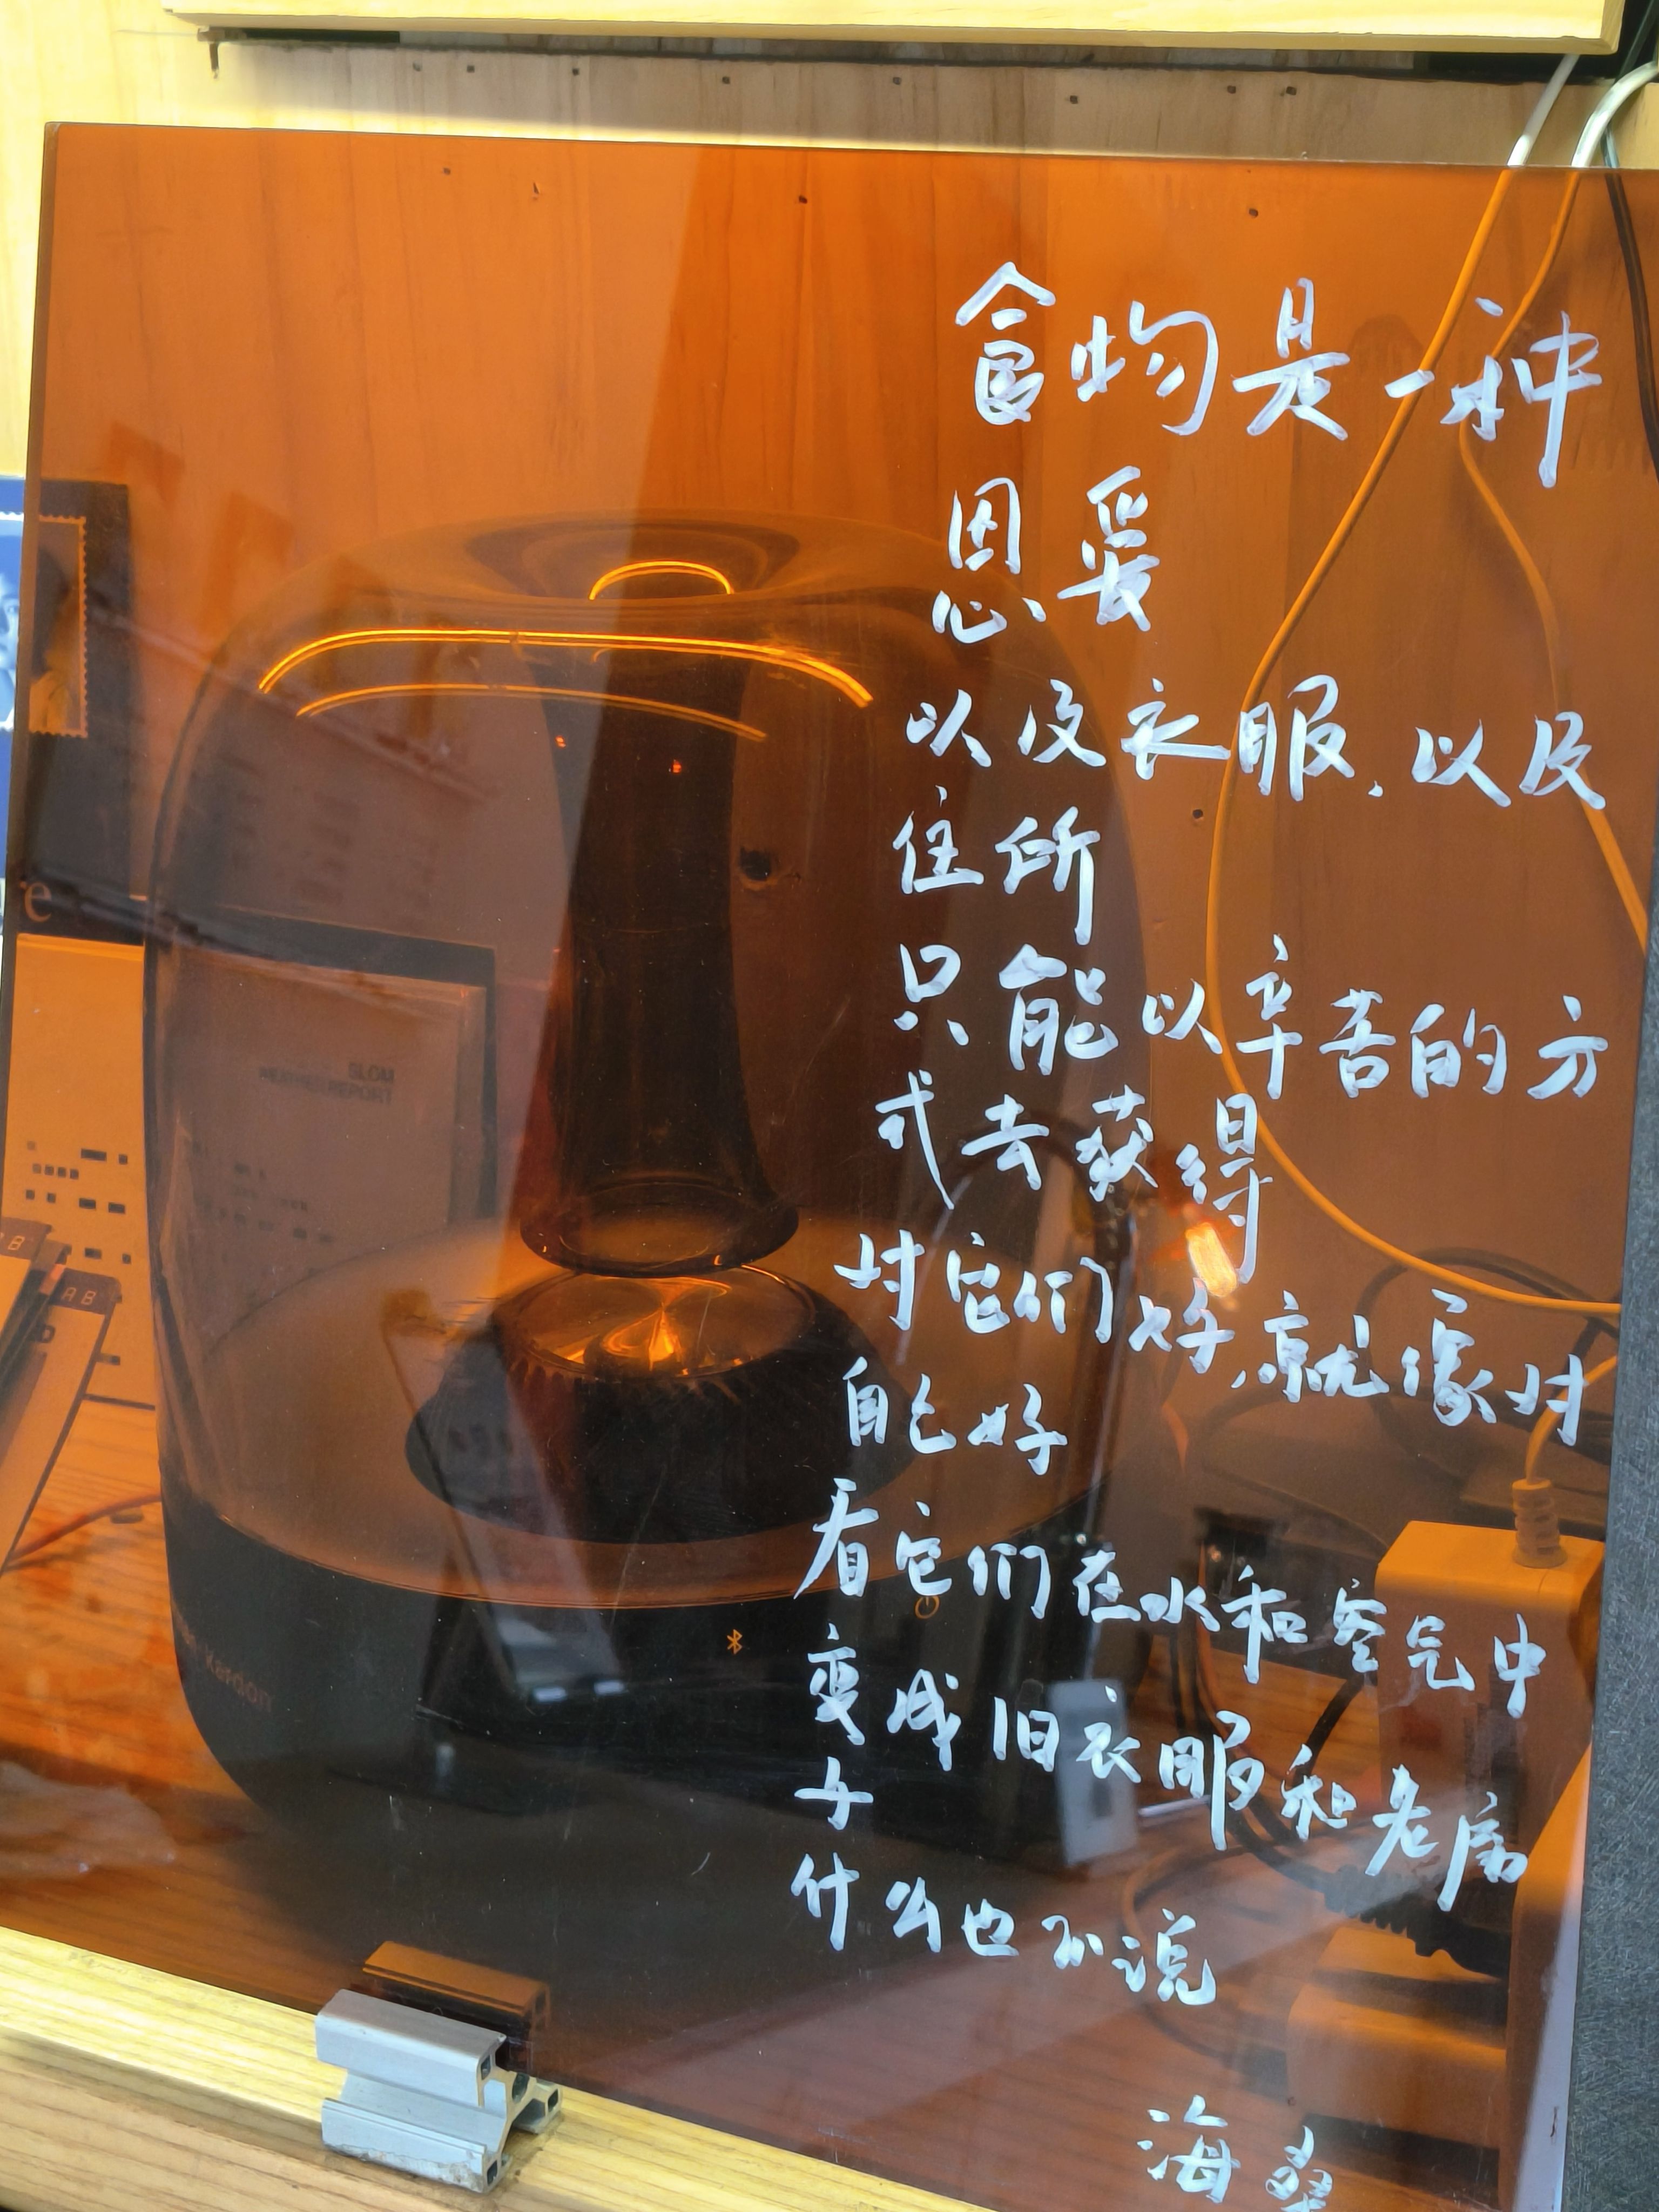 食物是一种
恩爱
以及衣服.以及
住所
只能以辛苦的方
式去获得
对它们好,就像对
自己好
看它们在水和空气中
变成旧衣服和老房
子
什么也不说
海桑
e
SLOM
WEATHER REPORT
B
AB
Kardon